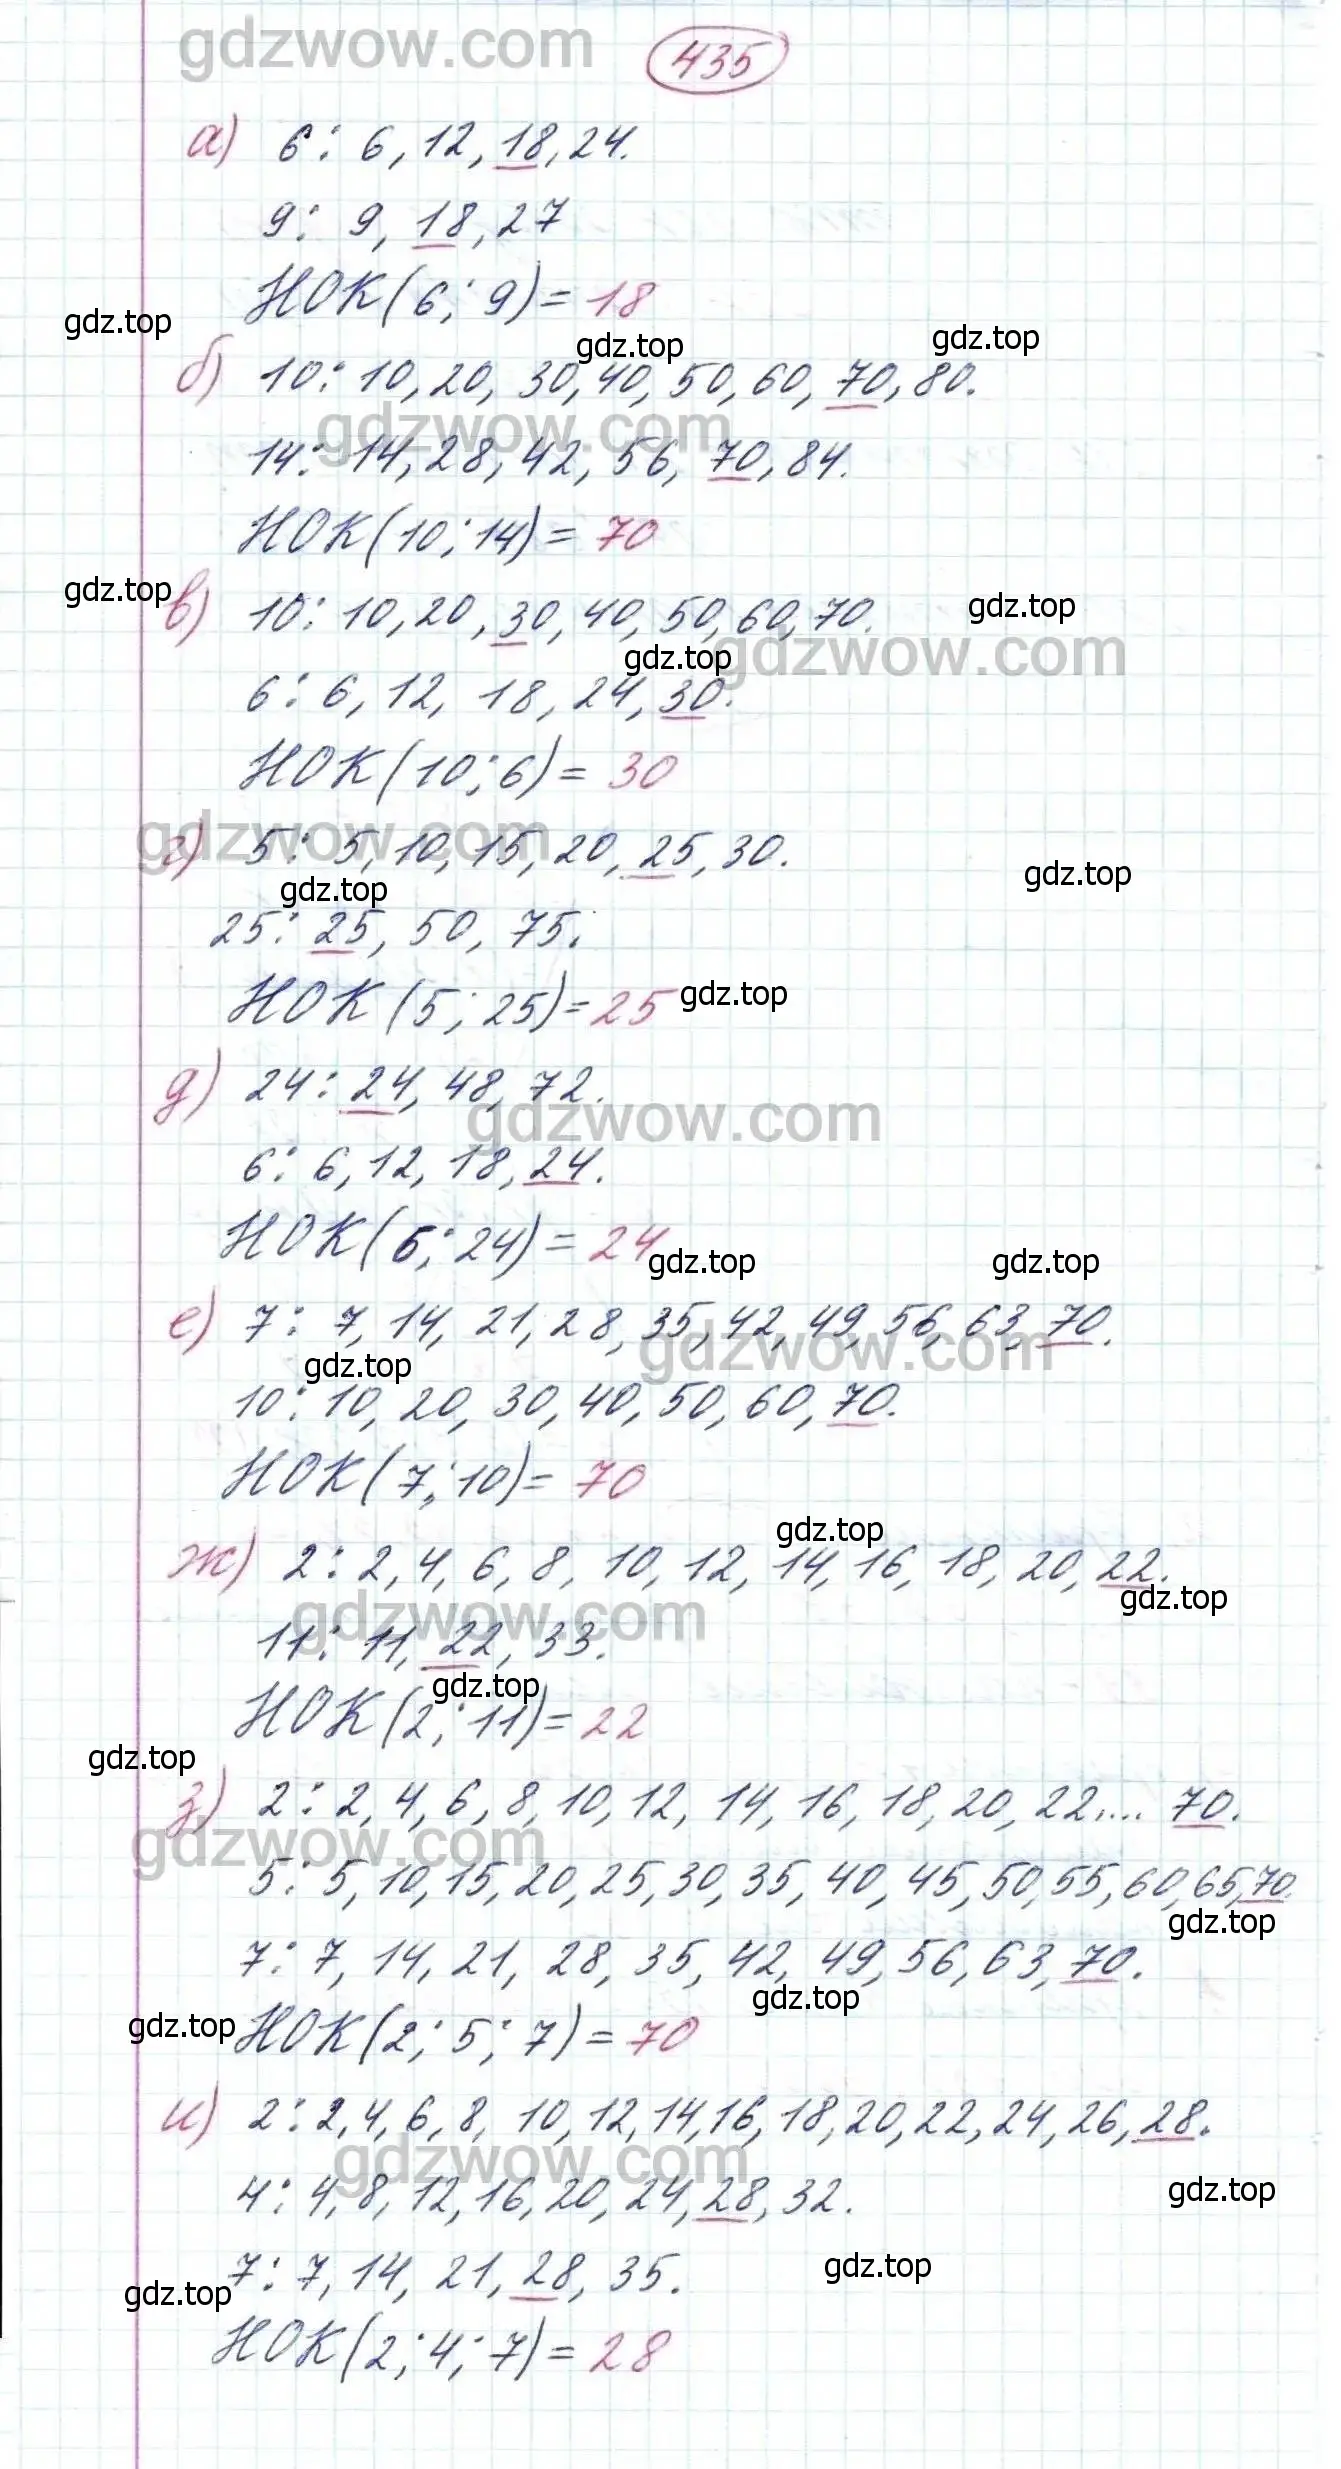 gdzwow.com
435
а) 6: 6, 12, 18, 24.
9: 9, 18, 27
НОК(6; 9) = 18
gdz.top
gdz.top
gdz.top
б) 10: 10, 20, 30, 40, 50, 60, 70, 80.
gdzwow.com
14: 14, 28, 42, 56, 70, 84.
НОК(10; 14) = 70
gdz.top
gdz.top
в) 10: 10, 20, 30, 40, 50, 60, 70.
gdz.top
gdzwow.com
6: 6, 12, 18, 24, 30.
НОК(10; 6) = 30
gdzwow.com
г) 5: 5, 10, 15, 20, 25, 30.
gdz.top
gdz.top
25: 25, 50, 75.
НОК(5; 25) = 25
gdz.top
д) 24: 24, 48, 72.
gdzwow.com
6: 6, 12, 18, 24.
НОК(6; 24) = 24
gdz.top
gdz.top
е) 7: 7, 14, 21, 28, 35, 42, 49, 56, 63, 70.
gdzwow.com
gdz.top
10: 10, 20, 30, 40, 50, 60, 70.
НОК(7; 10) = 70
gdz.top
ж) 2: 2, 4, 6, 8, 10, 12, 14, 16, 18, 20, 22.
gdz.top
gdzwow.com
11: 11, 22, 33.
gdz.top
НОК(2; 11) = 22
gdz.top
з) 2: 2, 4, 6, 8, 10, 12, 14, 16, 18, 20, 22, ... 70.
gdzwow.com
5: 5, 10, 15, 20, 25, 30, 35, 40, 45, 50, 55, 60, 65, 70.
gdz.top
7: 7, 14, 21, 28, 35, 42, 49, 56, 63, 70.
gdz.top
gdz.top
НОК(2; 5; 7) = 70
и) 2: 2, 4, 6, 8, 10, 12, 14, 16, 18, 20, 22, 24, 26, 28.
gdzwow.com
4: 4, 8, 12, 16, 20, 24, 28, 32.
gdz.top
7: 7, 14, 21, 28, 35.
gdz.top
gdz.top
НОК(2; 4; 7) = 28